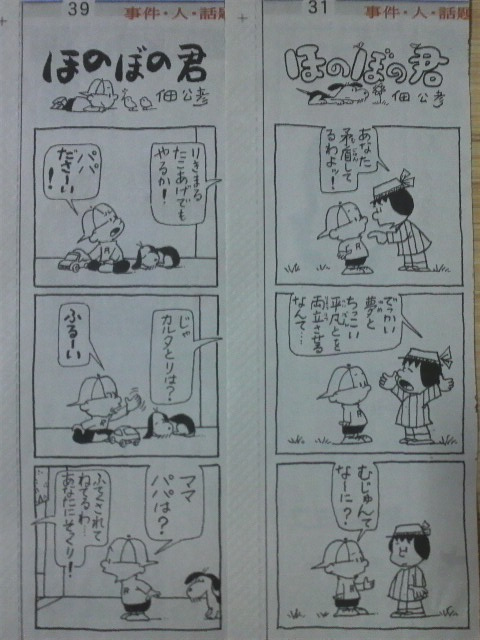 39
事件・人・話題
ほのぼの君
佃公彦
りきまる
たこあげでも
やるか!
パパ
ださーい!
じゃ
カルタとりは?
ふるーい
ママ
パパは?
ふてくされて
ねてるわ
あなたにそっくり!
31
事件・人・話題
ほのぼの君
佃公彦
あなた
矛盾して
るわよッ!
でっかい
夢と
ちっこい
平凡とを
両立させる
なんて…
むじゅんて
なーに?